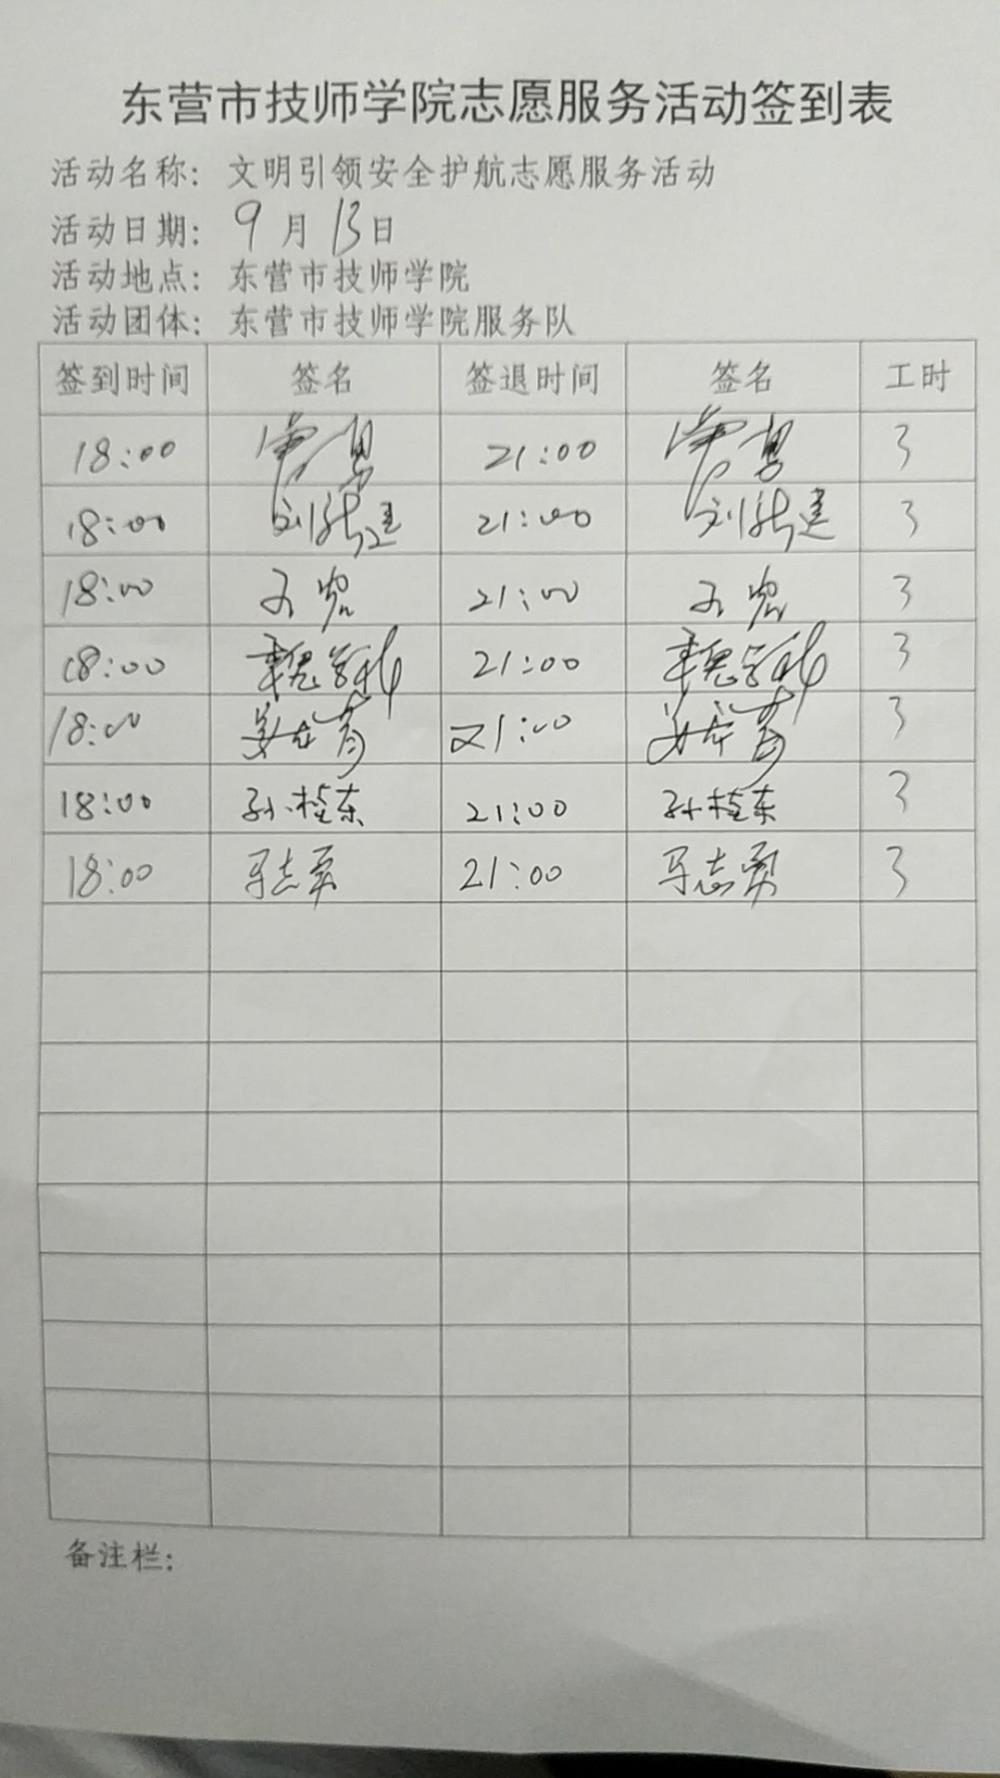 东营市技师学院志愿服务活动签到表
活动名称：文明引领安全护航志愿服务活动
活动日期：9月13日
活动地点：东营市技师学院
活动团体：东营市技师学院服务队
签到时间 签名 签退时间 签名 工时
18:00 21:00 3
18:00 刘 建 21:00 刘 建 3
18:00 21:00 3
18:00 魏 21:00 魏 3
18:00 姜 21:00 姜 3
18:00 孙桂东 21:00 孙桂东 3
18:00 马志勇 21:00 马志勇 3
备注栏：